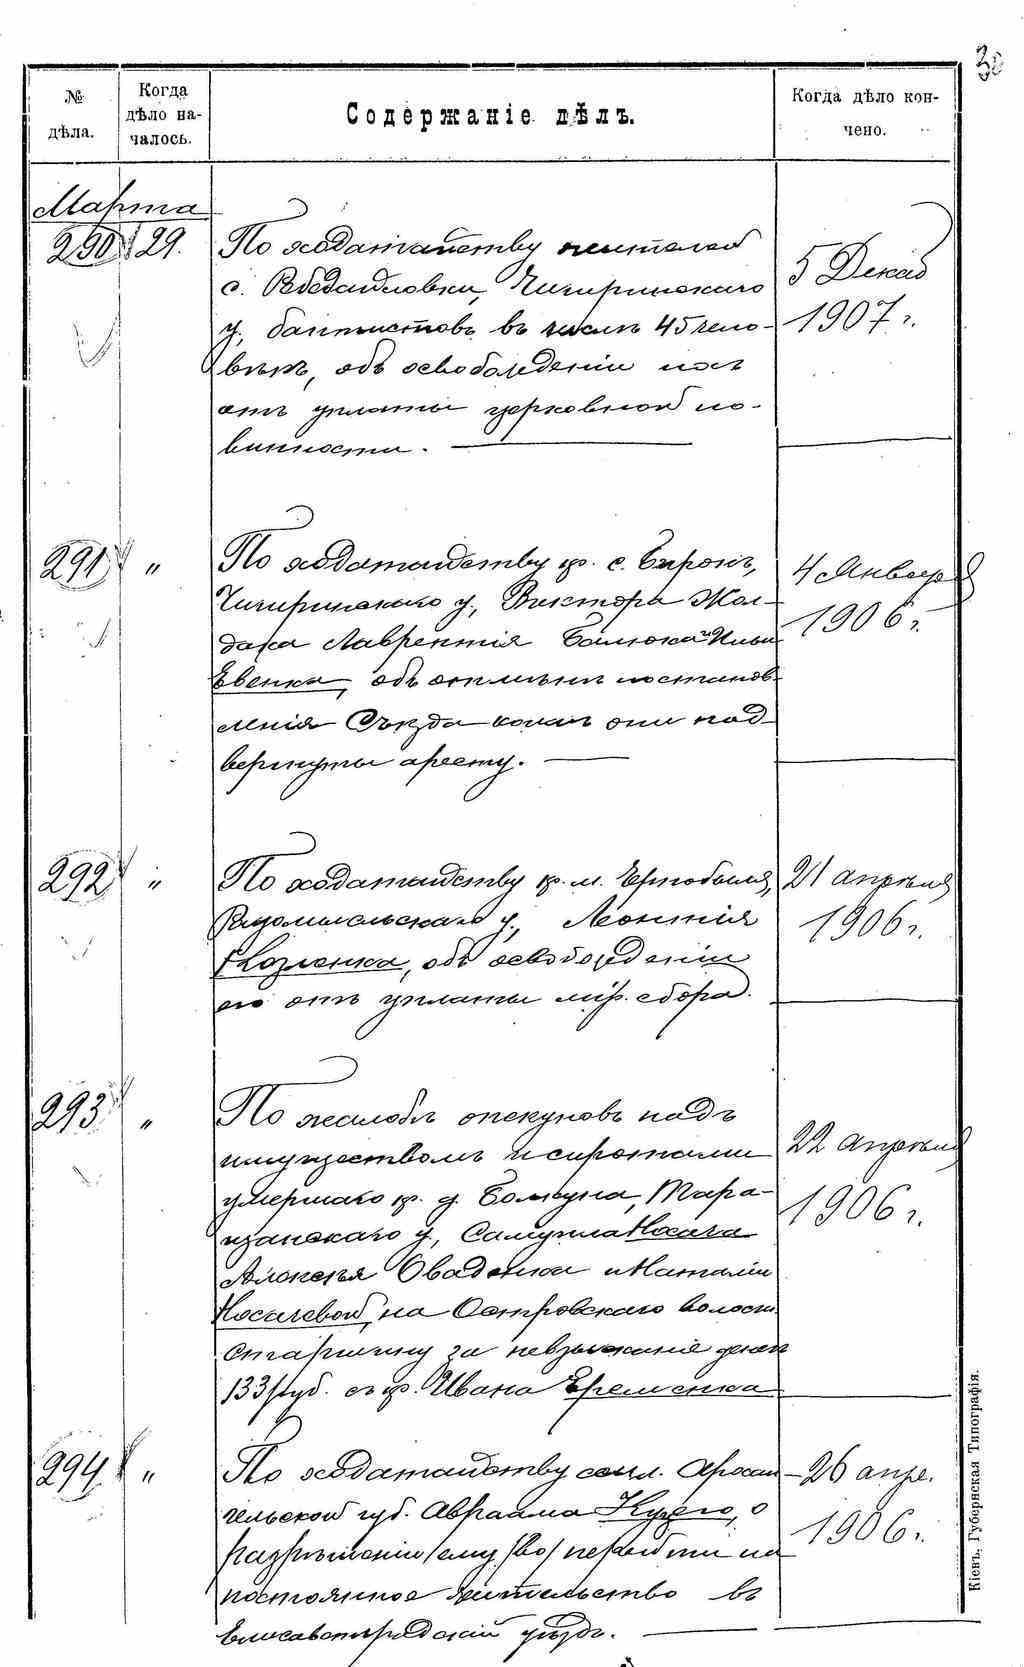 № дѣла.
Когда дѣло началось.
Содержаніе дѣлъ.
Когда дѣло кончено.
Марта
290 29. По ходатайству жителей
с. Чигиринскаго
у., баптистовъ въ числѣ 45 чело-
вѣкъ, объ освобожденіи ихъ
отъ уплаты церковной по-
винности.
5 Декаб
1907 г.
291 " По ходатайству кр. с.
Чигиринскаго у., Виктора Жол-
дака Лаврентія Балюка и Ильи
Евенка, объ отмѣнѣ постанов-
ленія Съѣзда коимъ они под-
вергнуты аресту.
4 Января
1906 г.
292 " По ходатайству кр. м. Чернобыля,
Радомысльскаго у., Леонтія
Козленка, объ освобожденіи
его отъ уплаты мір. сбора.
21 апрѣля
1906 г.
293 " По жалобѣ опекуновъ надъ
имуществомъ и сиротами
умершаго кр. д. Тара-
щанскаго у., Самуила Носача
Алексѣя и Наталіи
Носачевой, на Островскаго волост.
старшину за невзысканіе денегъ
133 руб. съ кр. Ивана Еременка
22 апрѣля
1906 г.
294 " По ходатайству ссыл. Архан-
гельской губ. Авраама о
разрѣшеніи ему перейти на
постоянное жительство въ
Елисаветградскій уѣздъ.
26 апрѣ.
1906 г.
Кіевъ, Губернская Типографія.